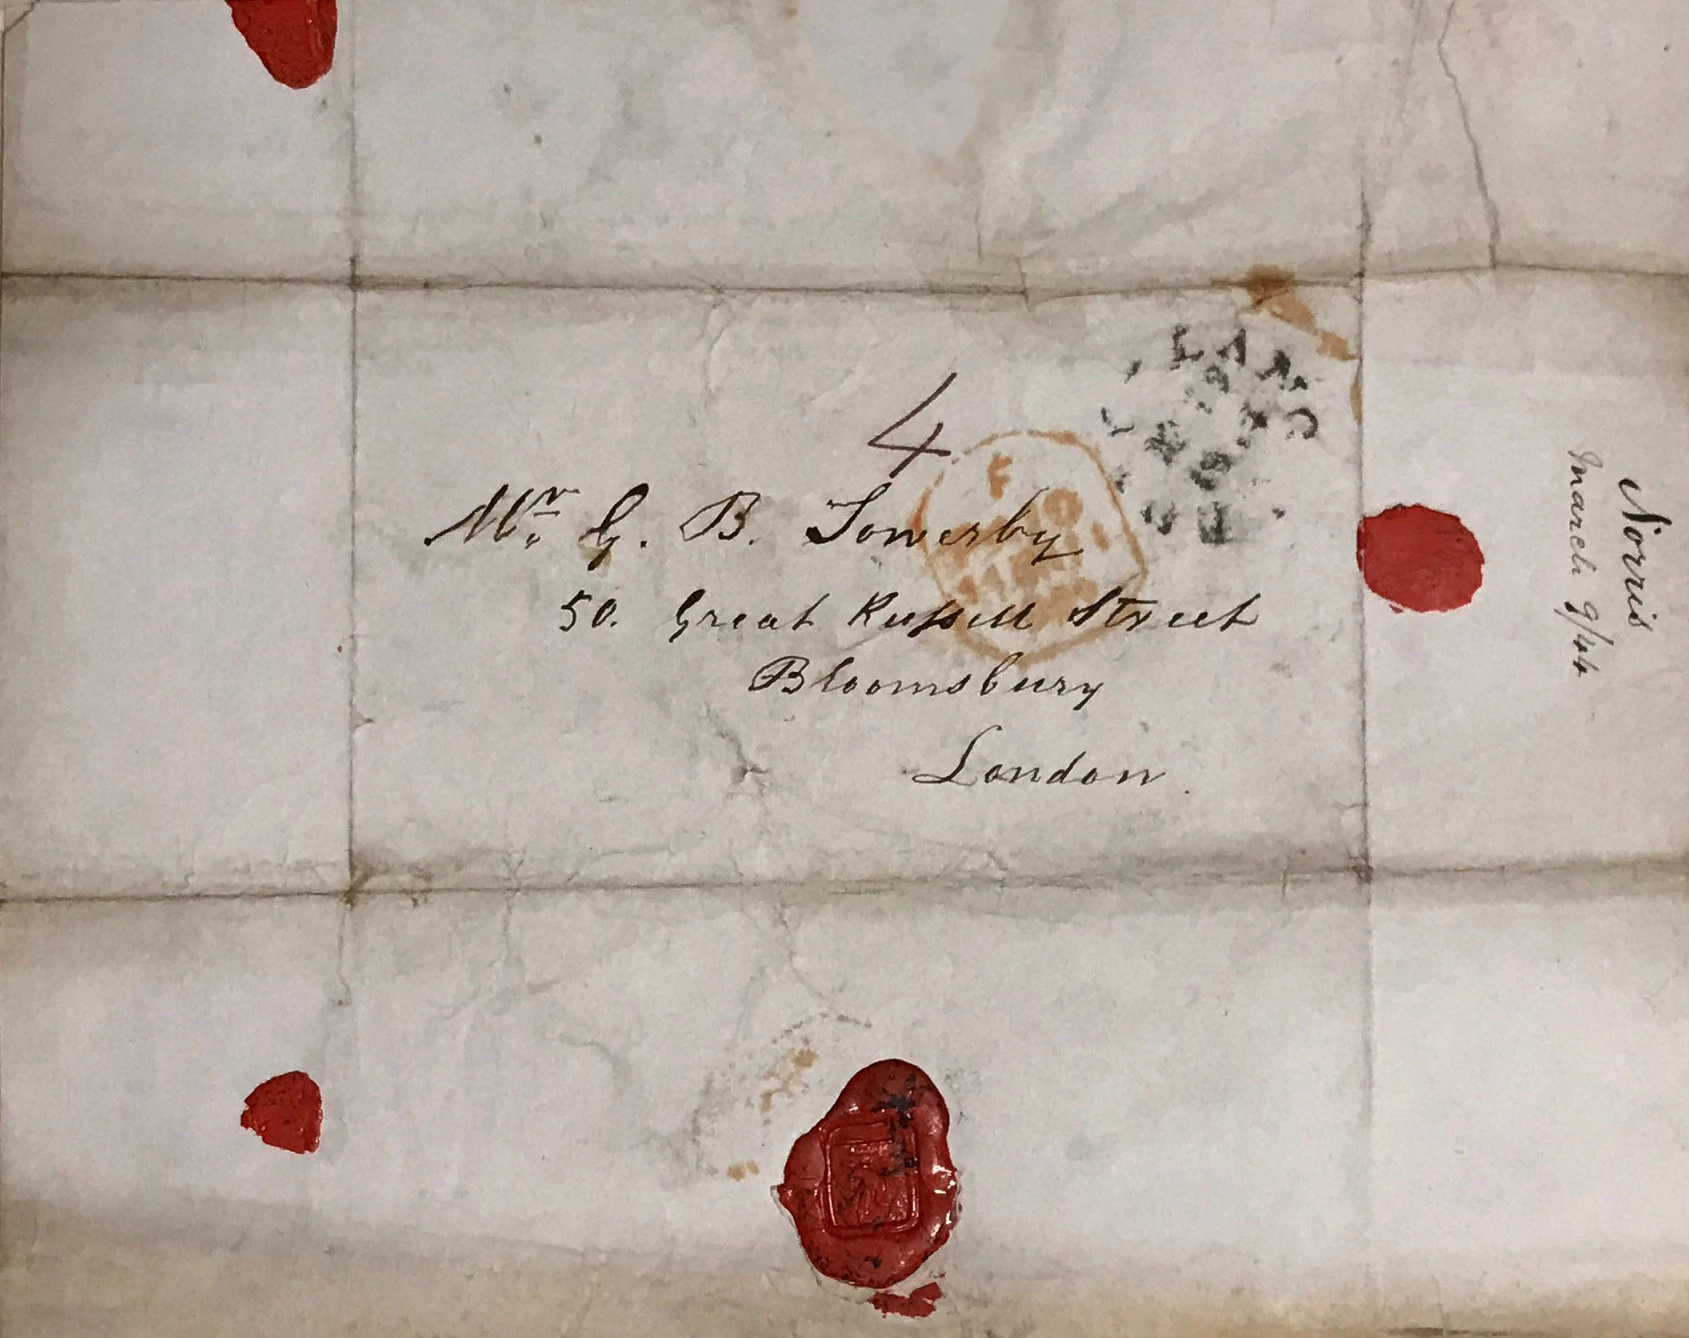 4
Mr. G. B. Sowerby
50. Great Russell Street
Bloomsbury
London
Norris
March 9/44